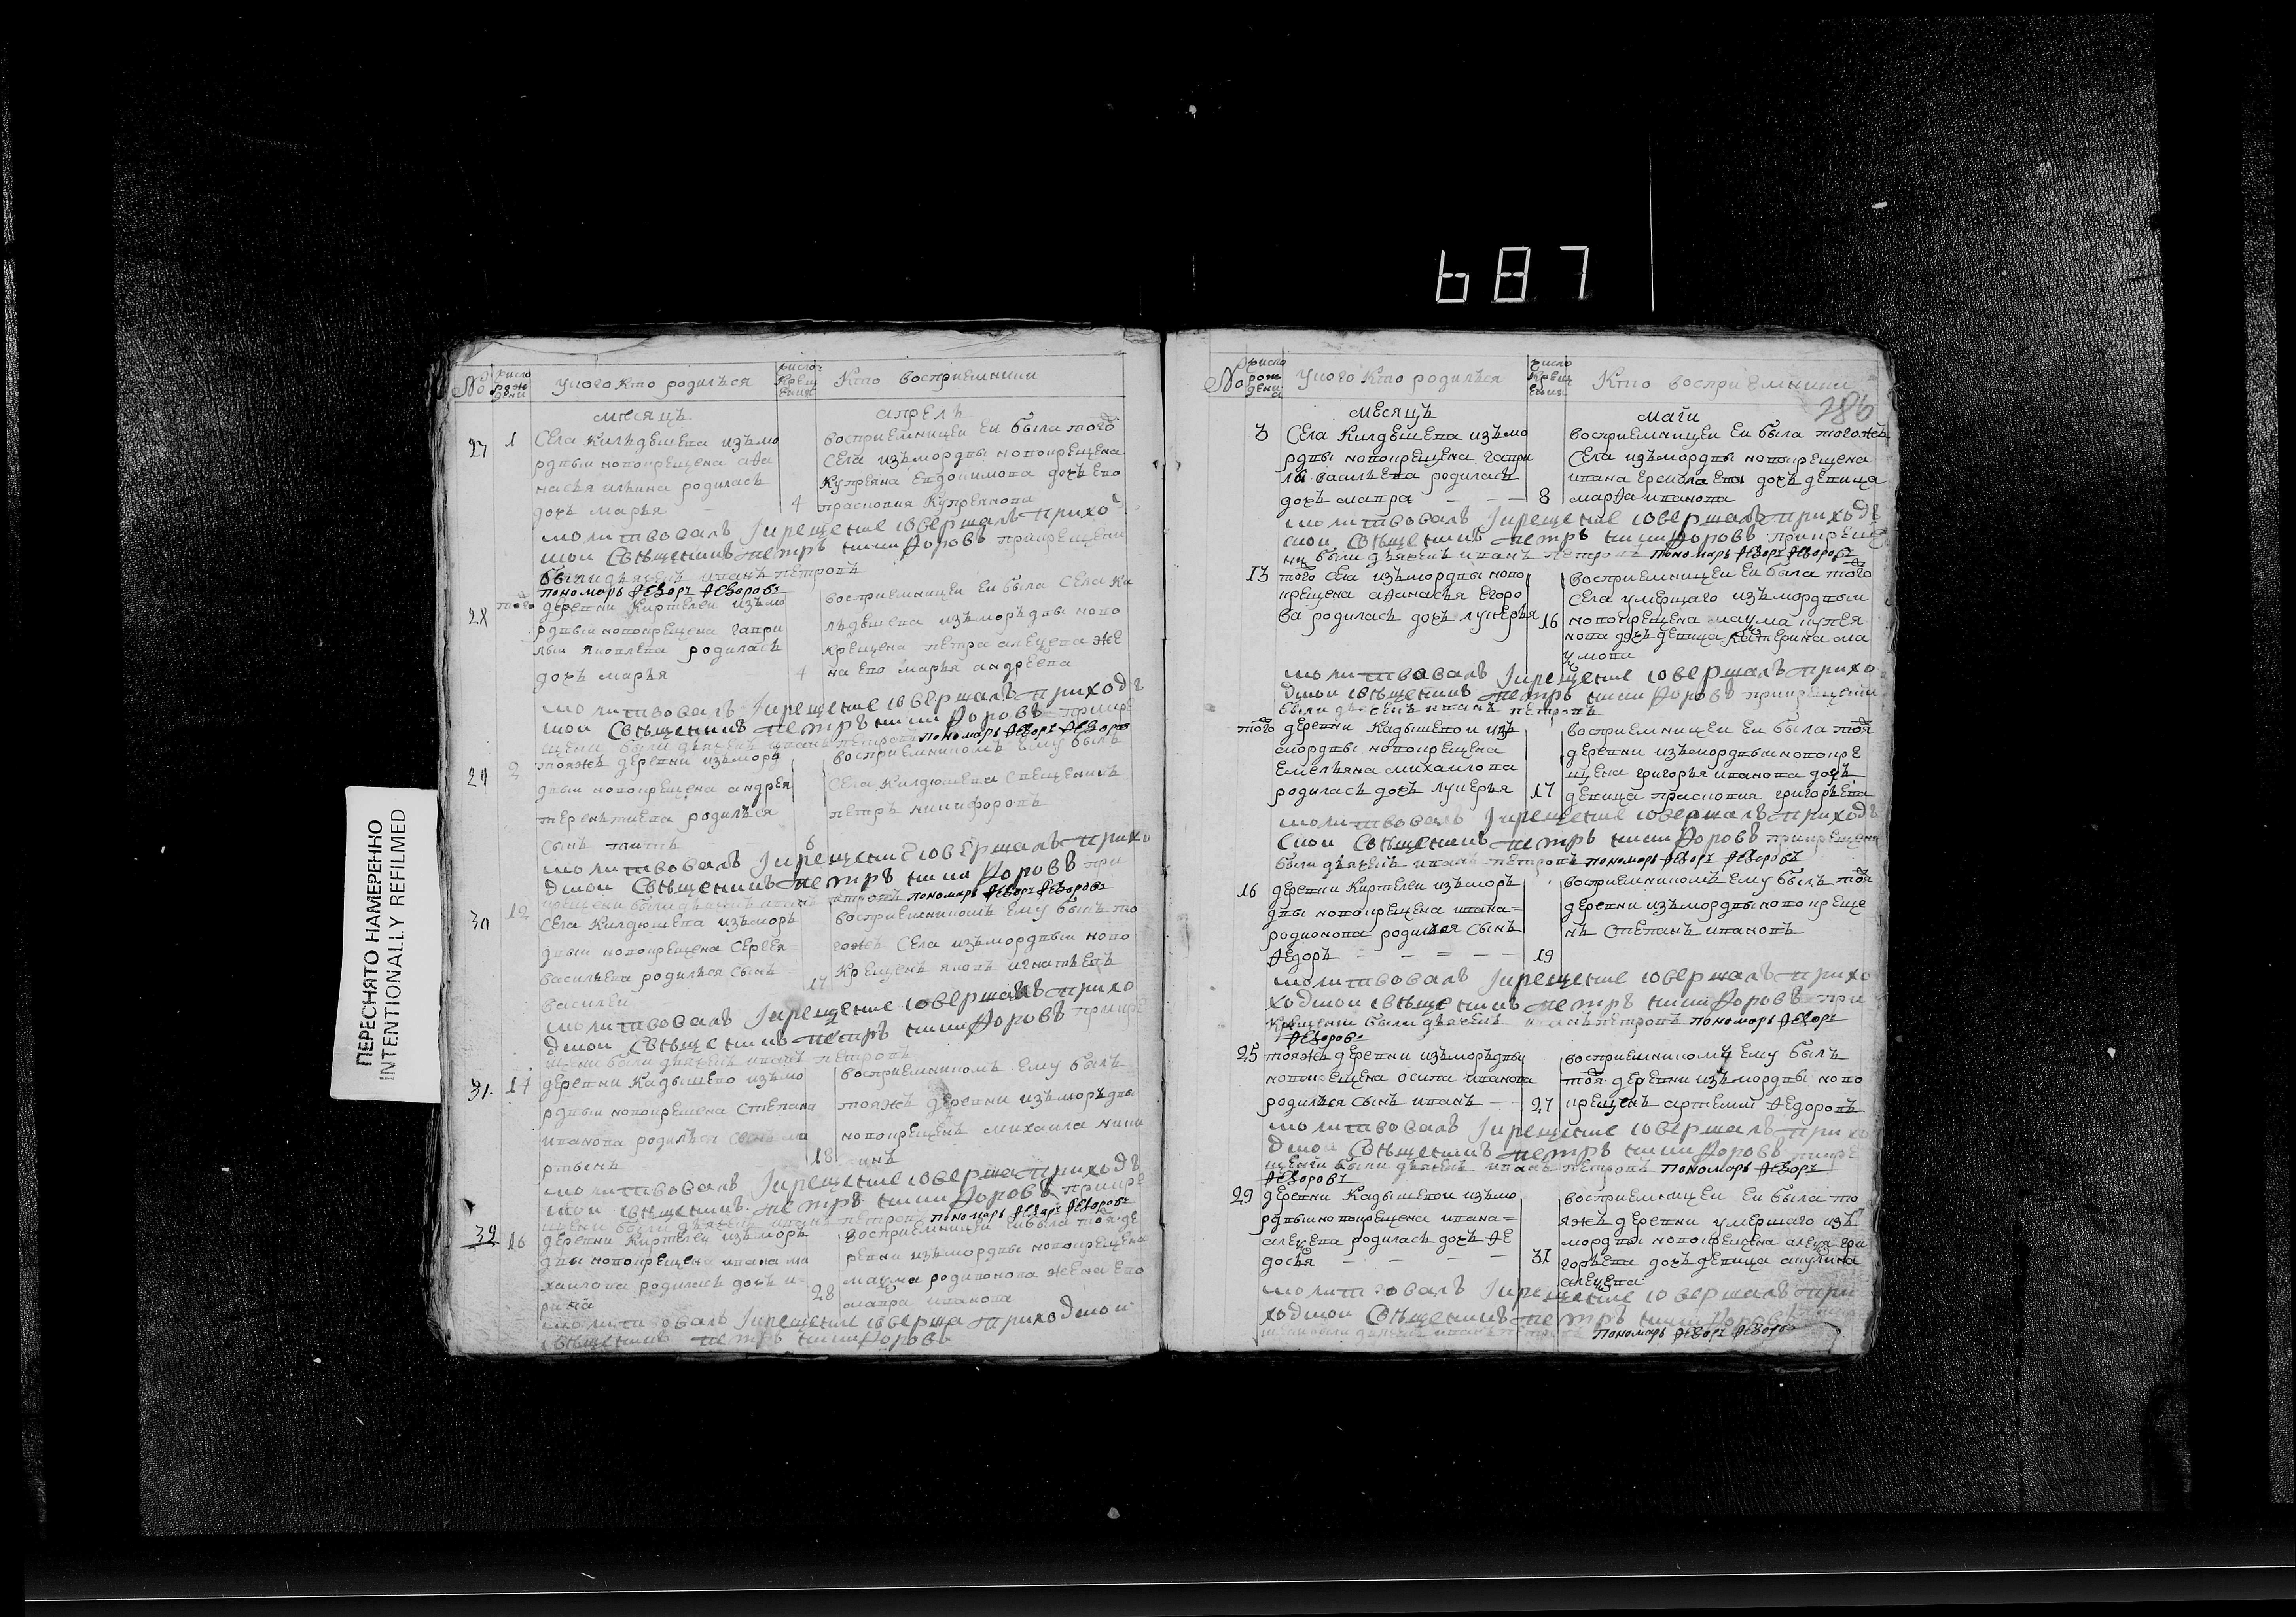 687
ПЕРЕСНЯТО НАМЕРЕННО
INTENTIONALLY REFILMED
№ число рождени
у кого кто родился
число крещения
Кто восприемники
месяцъ апрель
27 1 Села Килдюшева изъ мо
рдвы новокрещена афа
насья ильина родилась
дочь марья 4
восприемницеи еи была того
села изъ мордвы новокрещена
Купреяна
прасковия Купреянова
молитвовалъ Jкрещение совершалъ прихо
мои Священникъ петръ никифоровъ при крещени
были дьячекъ иванъ петровъ
пономарь Ѳедоръ Ѳедоровъ
28 того деревни Киртелеи изъ мо
рдвы новокрещена гаври
лы яковлева родилась
дочь марья 4
восприемницеи еи была села ки
лдюшева изъ мордвы ново
крещена петра алеѯева же
на ево марья андреева
молитвовалъ Jкрещение совершалъ приход
мои Священникъ петръ никифоровъ при кре
щени были дьячекъ иванъ петровъ пономарь Ѳедоръ Ѳедоровъ
29 2 тояжъ деревни изъ морд
двы новокрещена андрея
терентиева родился
сынъ 6
восприемникомъ ему былъ
села Килдюшева священикъ
петръ никифоровъ
молитвовалъ Jкрещение совершалъ прихо
дмои Священникъ петръ никифоровъ при
крещени были дьячекъ иванъ петровъ пономарь Ѳедоръ Ѳедоровъ
30 12 села Килдюшева изъ морд
двы новокрещена Сергея
васильева родился сынъ 17
василеи
восприемникомъ ему былъ то
гожъ села изъ мордвы ново
крещенъ яковъ игнатьевъ
молитвовалъ Jкрещение совершалъ прихо
дмои Священникъ петръ никифоровъ при кре
щени были дьячекъ иванъ петровъ
31 17 деревни Кадышево изъ мо
рдвы новокрещена Степана
иванова родился сынъ ма
ртынъ 18
восприемникомъ ему былъ
тояжъ деревни изъ мордвы
новокрещенъ михаила ники
инъ
молитвовалъ Jкрещение соверша приход
мои священникъ петръ никифоровъ при кре
щени были дьячекъ иванъ петровъ пономарь Ѳедоръ Ѳедоровъ
32 26 деревни Киртелеи изъ морд
двы новокрещена ивана ми
хаилова родилась дочь и
рина 28
восприемницеи еи была тоя де
ревни изъ мордвы новокрещена
маѯима родионова жена ево
мавра иванова
молитвовалъ Jкрещение соверша приходмои
священникъ петръ никифоровъ
№ число рождени
у кого кто родился
число крещения
Кто восприемники
286
месяцъ маии
3 Села Килдюшева изъ мо
рдвы новокрещена гаври
ла васильева родилась
дочь мавра 8
восприемницеи еи была тогожъ
села изъ мордвы новокрещена
ивана ермолаева дочь девица
марѳа иванова
молитвовалъ Jкрещение совершалъ приход
мои Священникъ петръ никифоровъ при креще
ни были дьячекъ иванъ петровъ пономарь Ѳедоръ Ѳедоровъ
13 того села изъ мордвы ново
крещена афанасья егоро
ва родилась дочь лукерья 16
восприемницеи еи была того
села умершаго изъ мордвы
новокрещена наума лукея
нова дочь девица катерина на
умова
молитвовалъ Jкрещение совершалъ прихо
дмои священникъ петръ никифоровъ при крещени
были дьячекъ иванъ петровъ
того деревни Кадышевои изъ
мордвы новокрещена
емельяна михаилова
родилась дочь лукерья 17
восприемницеи еи была тоя
деревни изъ мордвы новокре
щена григорья иванова дочь
девица прасковия григорьева
молитвовалъ Jкрещение совершалъ приход
смои Священникъ петръ никифоровъ при крещени
были дьячекъ иванъ петровъ пономарь Ѳедоръ Ѳедоровъ
16 деревни Киртелеи изъ морд
двы новокрещена ивана
родионова родился сынъ
Ѳедоръ 19
восприемникомъ ему былъ тоя
деревни изъ мордвы новокреще
нъ Степанъ ивановъ
молитвовалъ Jкрещение совершалъ прихо
ходмои священникъ петръ никифоровъ при
крещени были дьячекъ иванъ петровъ пономарь Ѳедоръ
Ѳедоровъ
25 тояжъ деревни изъ мордвы
новокрещена осипа иванова
родился сынъ иванъ 27
восприемникомъ ему былъ
тоя деревни изъ мордвы ново
крещенъ артемии Ѳедоровъ
молитвовалъ Jкрещение совершалъ прихо
дмои Священникъ петръ никифоровъ при кре
щени были дьячекъ иванъ петровъ пономарь Ѳедоръ
Ѳедоровъ
29 деревни Кадышевои изъ мо
рдвы новокрещена ивана
алеѯева родилась дочь Ѳе
досья 31
восприемницеи еи была то
яжъ деревни умершаго изъ
мордвы новокрещена алеѯея гри
горьева дочь девица акулина
алеѯева
молитвовалъ Jкрещение совершалъ при
ходмои Священникъ петръ никифоровъ
щени были дьячекъ иванъ петровъ пономарь Ѳедоръ Ѳедоровъ